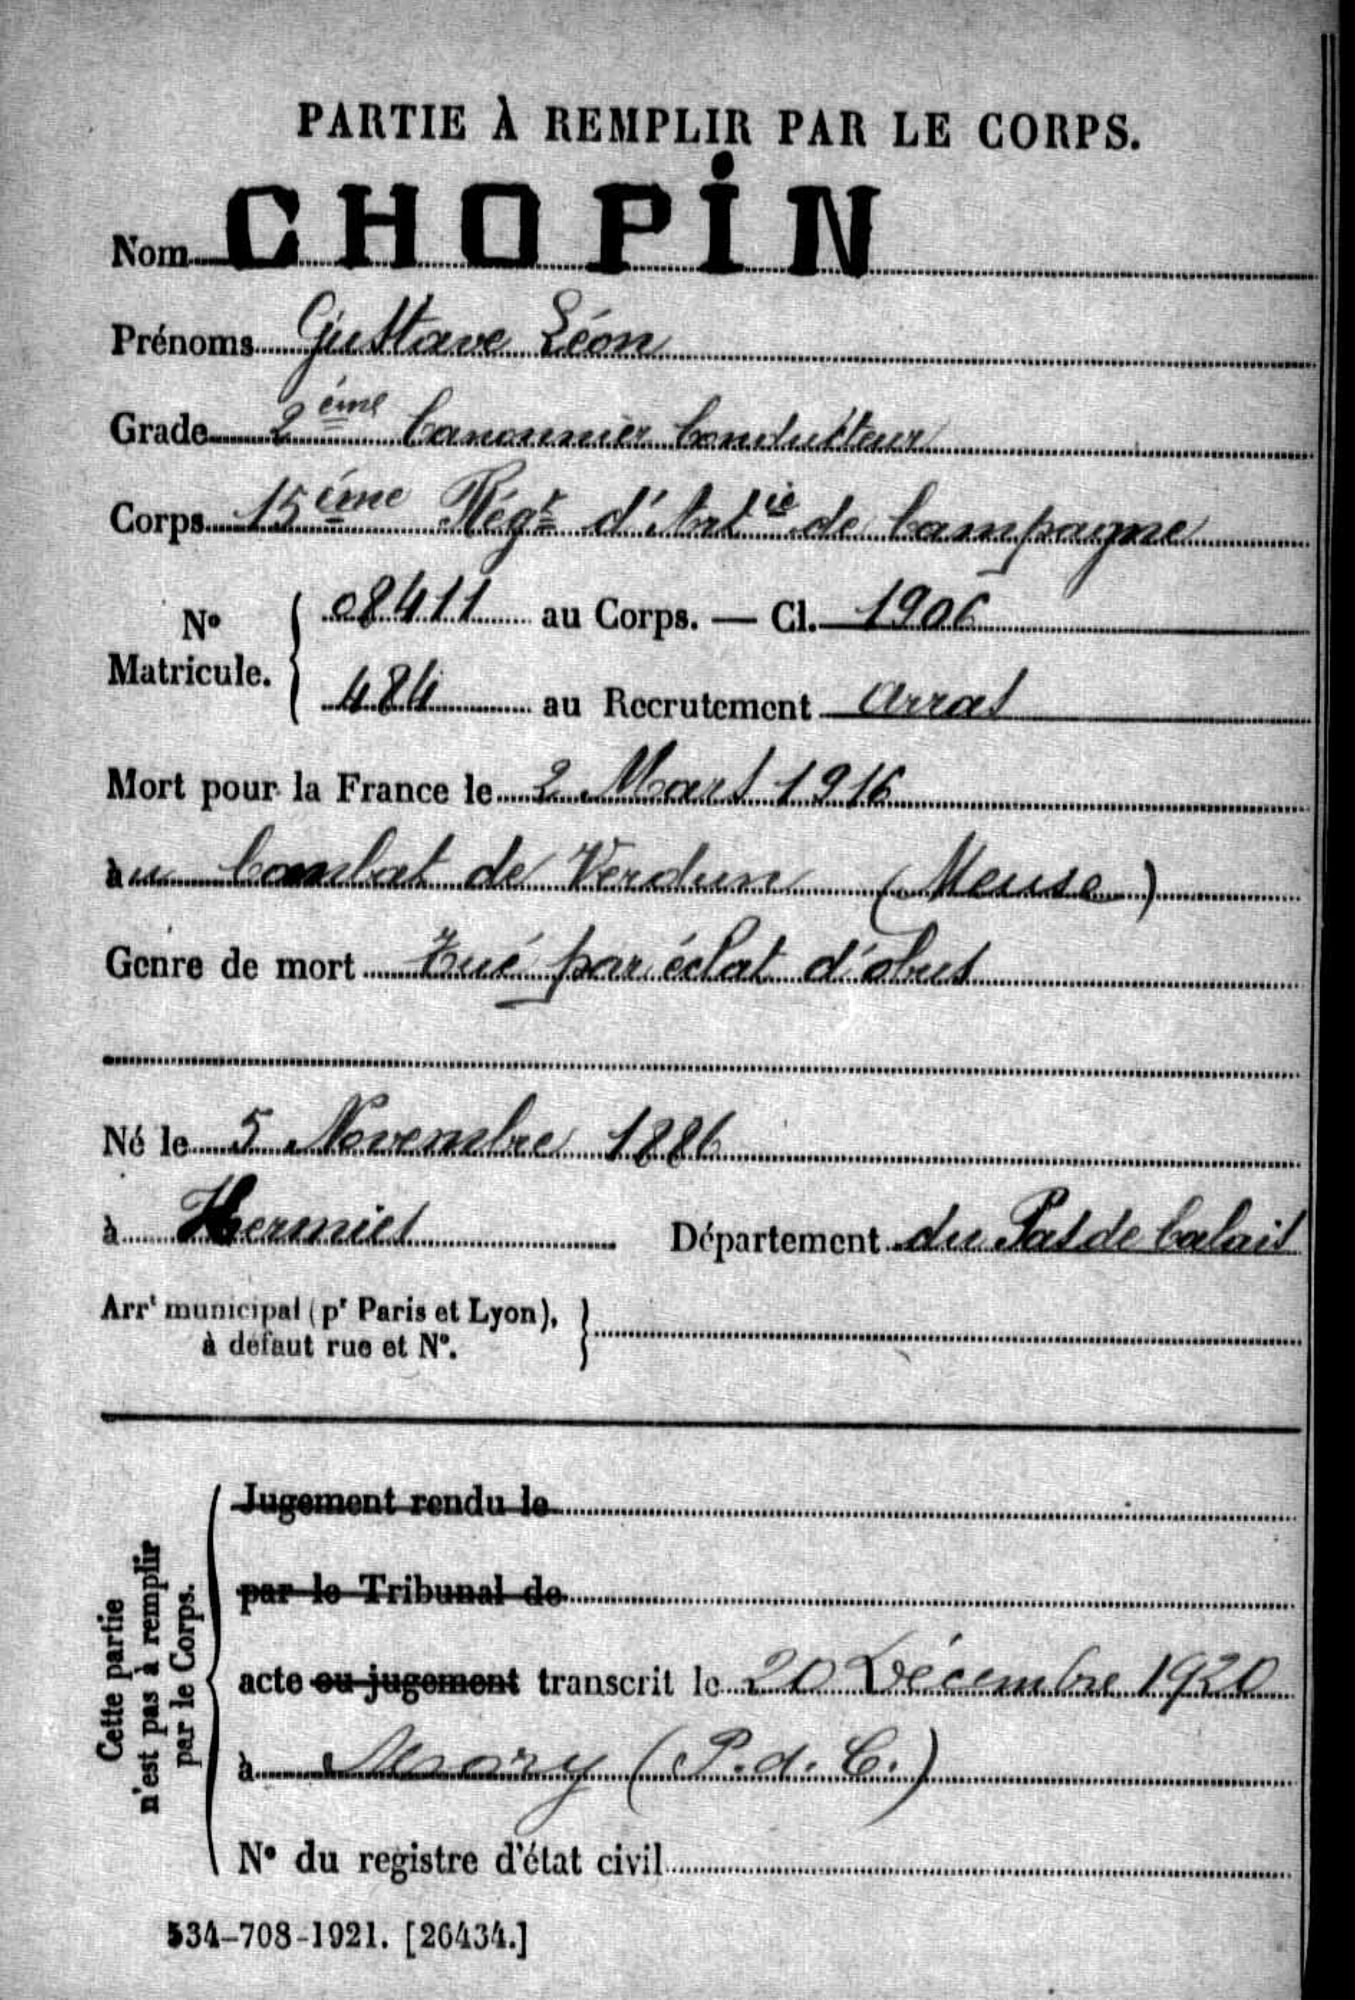 PARTIE À REMPLIR PAR LE CORPS.
Nom CHOPIN
Prénoms Gustave Léon
Grade 2ème Canonnier Conducteur
Corps 15ème Régt d'Artie de Campagne
No Matricule. { 08411 au Corps. — Cl. 1906
484 au Recrutement Arras
Mort pour la France le 2 Mars 1916
au Combat de Verdun (Meuse)
Genre de mort Tué par éclat d'obus
Né le 5 Novembre 1886
à Hermies Département du Pas de Calais
Arrt municipal (pr Paris et Lyon), à défaut rue et No. }
Cette partie n'est pas à remplir par le Corps.
Jugement rendu le
par le Tribunal de
acte ou jugement transcrit le 20 Décembre 1920
à Mory (P.d.C.)
No du registre d'état civil
534-708-1921. [26434.]